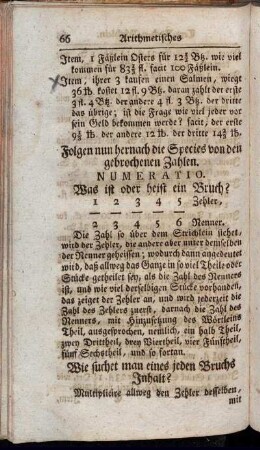 66 Arithmetisches
Item, 1 Fäßlein Osters für 12¾ Btz. wie viel
kommen für 83⅓ fl. facit 100 Fäßlein.
Item, ihrer 3 kaufen einen Salmen, wiegt
36 lb. kostet 12 fl. 9 Btz. daran zahlt der erste
3 fl. 4 Btz. der andere 4 fl. 3 Btz. der dritte
das übrige; ist die Frage wie viel jeder vor
sein Geld bekommen werde? facit; der erste
lb. der andere 12 lb. der dritte lb.
Folgen nun hernach die Species von den
gebrochenen Zahlen.
NUMERATIO.
Was ist oder heist ein Bruch?
1 2 3 4 5 Zehler,
2 3 4 5 6 Nenner.
Die Zahl so über dem Strichlein stehet,
wird der Zehler, die andere aber unter demselben
der Nenner geheissen; wodurch dann angedeutet
wird, daß allweg das Ganze in so viel Theile oder
Stücke getheilet sey, als die Zahl des Nenners
ist, und wie viel derselbigen Stücke vorhanden,
das zeiget der Zehler an, und wird jederzeit die
Zahl des Zehlers zuerst, darnach die Zahl des
Nenners, mit Hinzusetzung des Wörtleins
Theil, ausgesprochen, nemlich, ein halb Theil,
zwey Drittheil, drey Viertheil, vier Fünftheil,
fünf Sechstheil, und so fortan.
Wie sucht man eines jeden Bruchs
Inhalt?
Multiplicire allweg den Zehler desselben,
mit